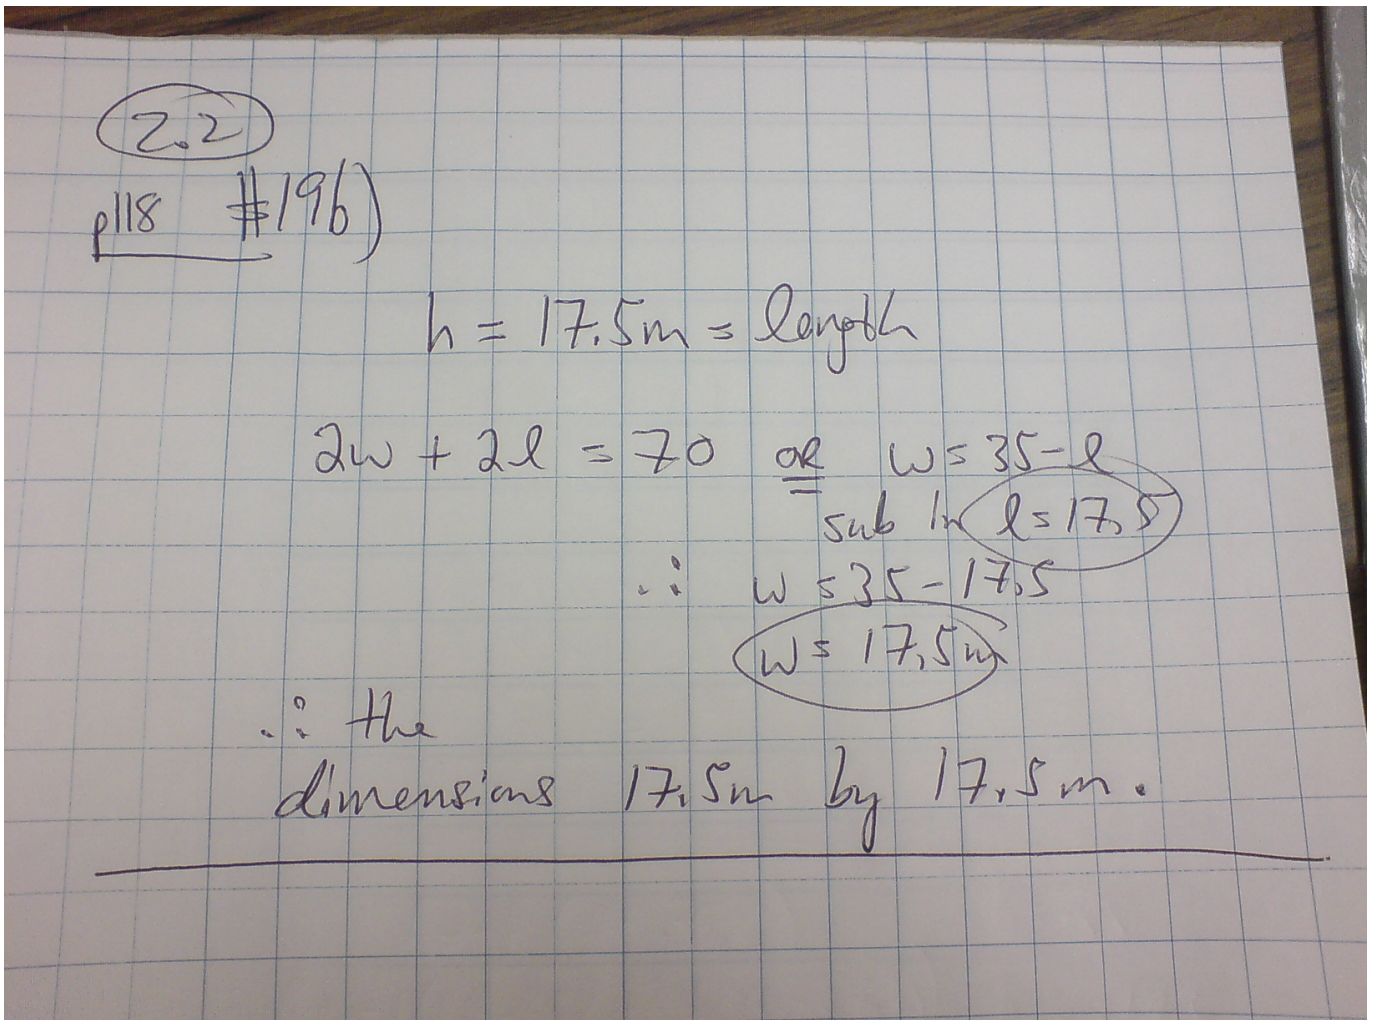 2.2
p118 #19b)
h = 17.5m = length
2w + 2l = 70 OR w = 35 - l
sub in l = 17.5
∴ w = 35 - 17.5
w = 17.5m
∴ the
dimensions 17.5m by 17.5m.